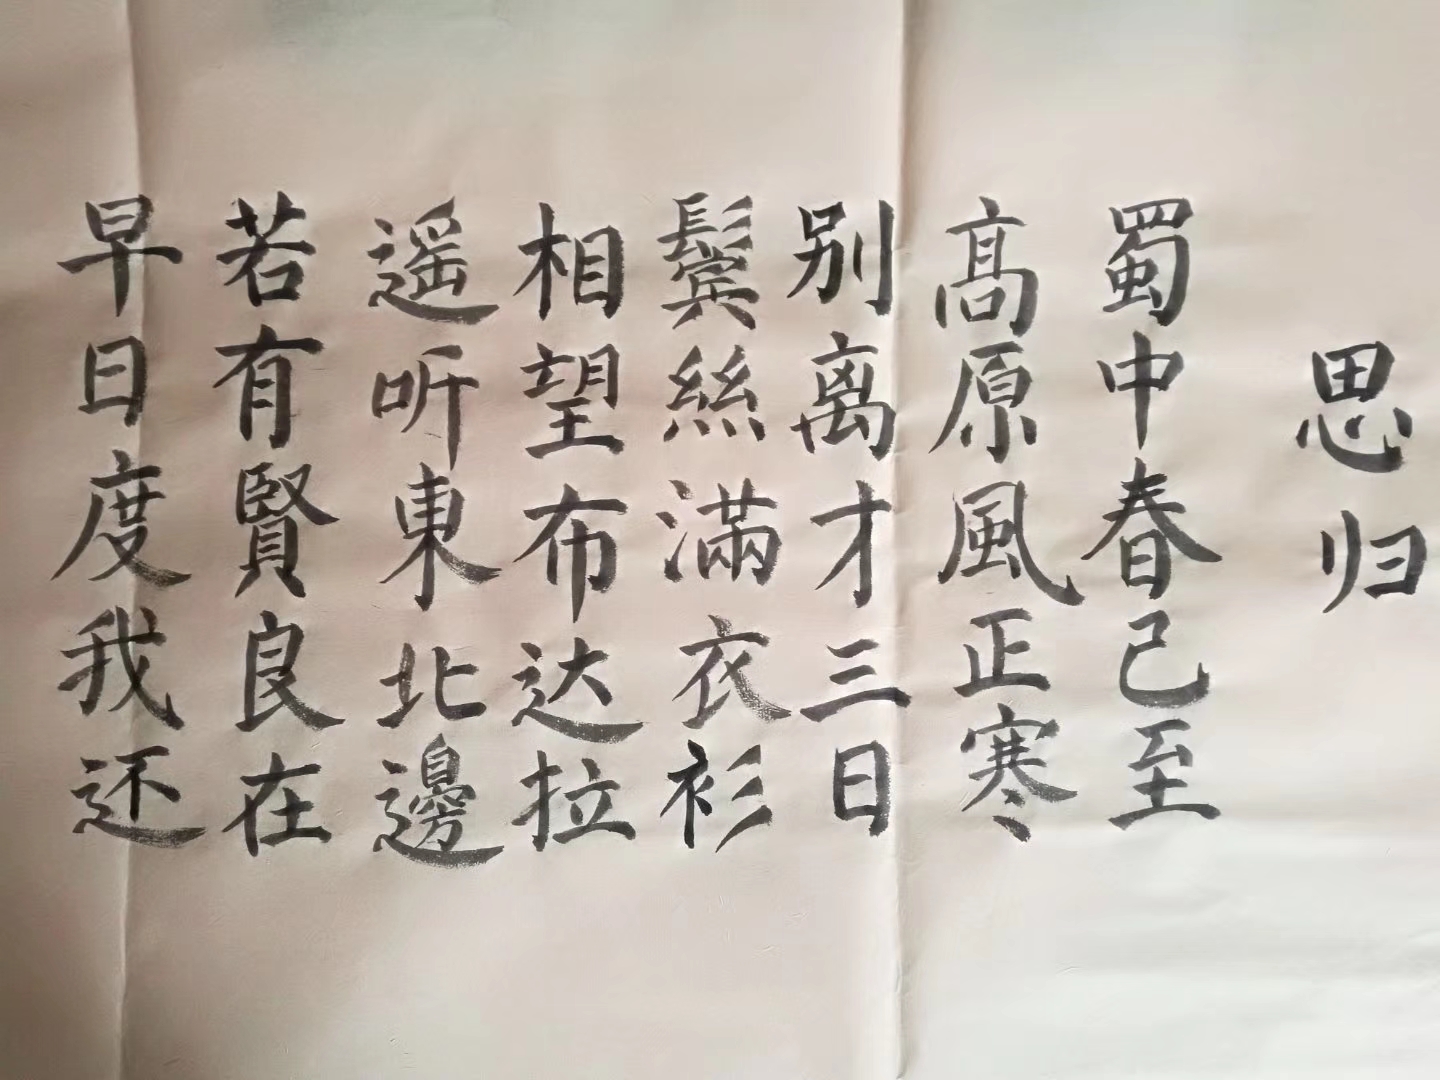 思归
蜀中春已至
髙原風正寒
别离才三日
鬓絲滿衣衫
相望布达拉
遥听東北邊
若有賢良在
早日度我还